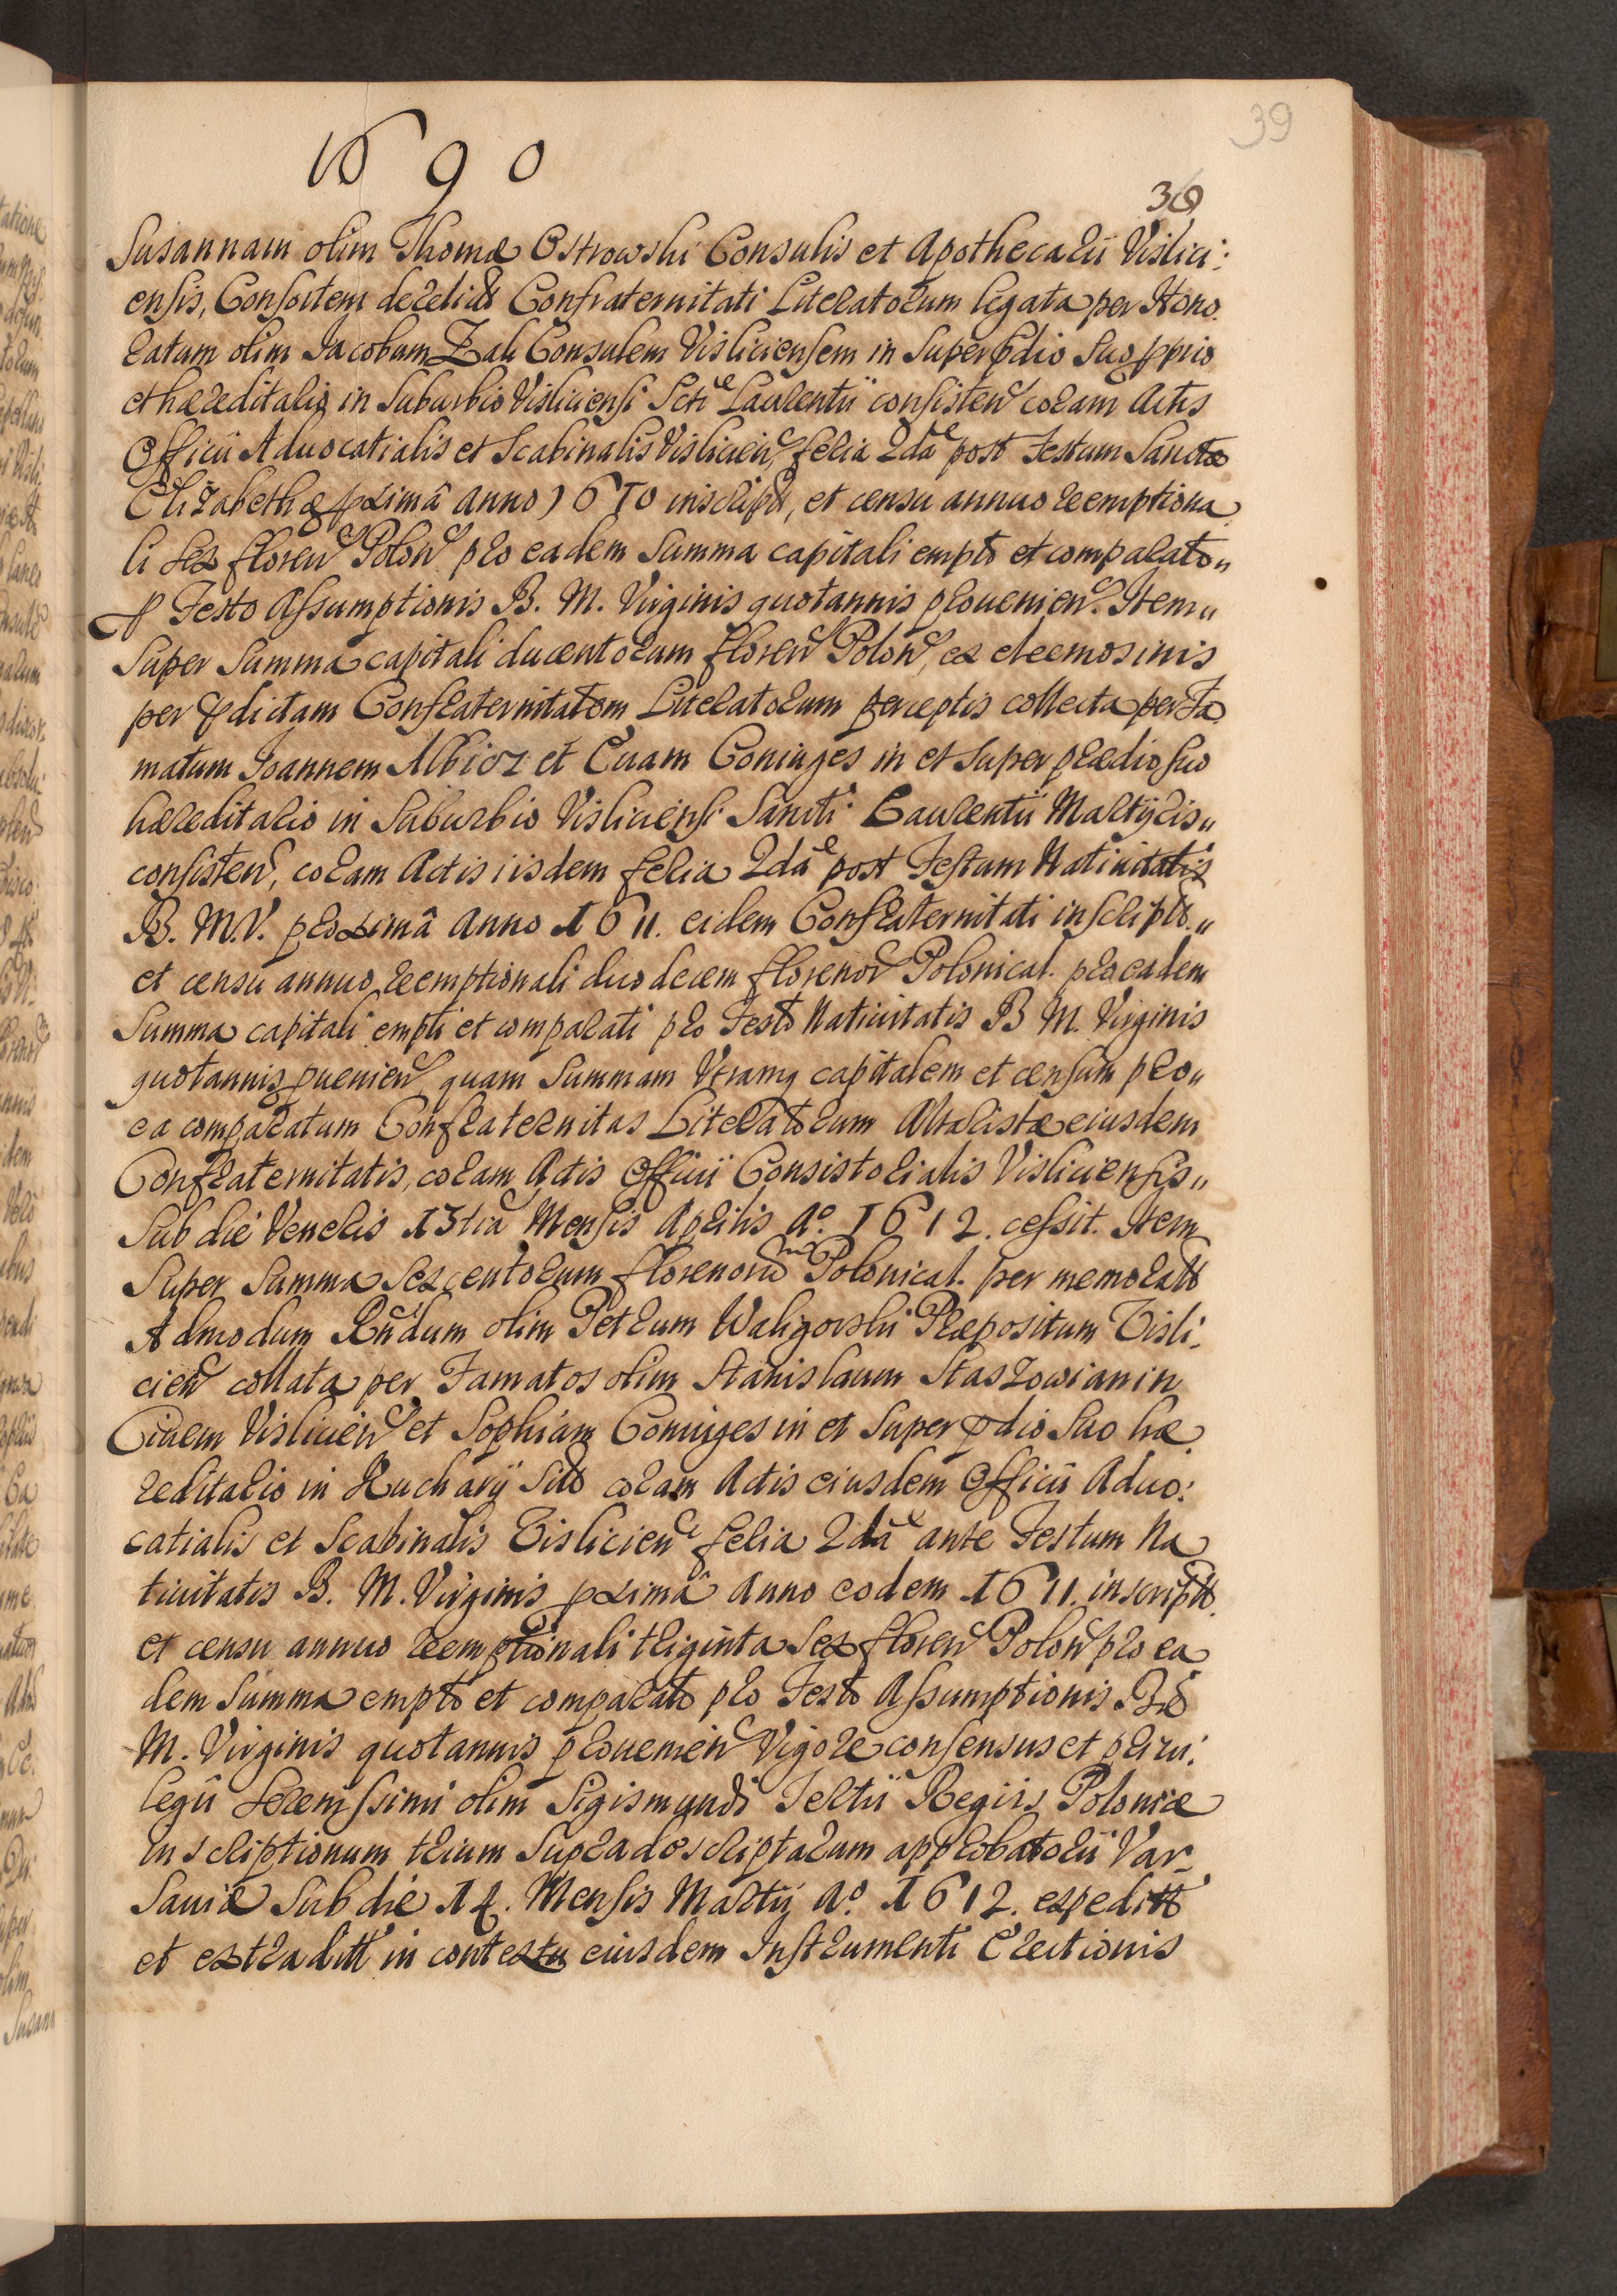 39
1690
39
Susannam olim Thomæ Ostrowski Consulis et Apothecarii Vislici:
ensis, Consortem derelict Confraternitati Literatorum legata per Hono
ratum olim Jacobum Zak Consulem Visliciensem in Super pdio Suo pprio
et hæreditario in Suburbio Visliciensi Scti Laurentii consisten coram Actis
Officii Advocatialis et Scabinalis Vislicien, feria 2da post Festum Sanctæ
Elizabethæ pximâ Anno 1610 inscript, et censu annuo reemptiona
li sex floren Polon pro eadem Summa capitali empto et comparato„
p Festo Assumptionis B. M. Virginis quotannis provenien. Item„
Super Summa capitali ducentorum floren Polon, ex eleemosinis
per pdictam Confraternitatem Literatorum perceptis collecta per Fa
matum Joannem Albicz et Evam Coniuges in et Super prædio suo
hæreditario in Suburbio Visliciensi Sancti Laurentii Martyris„
consisten, coram Actis iisdem feria 2da post Festum Nativitatis
B. M. V. proximâ Anno 1611. eidem Confraternitati inscript.„
et censu annuo reemptionali duodecem florenor Polonical. pro eadem
Summa capitali empti et comparati pro Festo Nativitatis B M. Virginis
quotannis puenien quam Summam Utramq capitalem et censum pro„
ea comparatum Confraternitas Literatorum Altaristæ eiusdem
Confraternitatis, coram Actis Officii Consistorialis Visliciensis„
Sub die Veneris 13tia Mensis Aprilis Aº. 1612. cessit. Item
Super Summa Sexcentorum florenoru Polonical. per memorat
Admodum Rndum olim Petrum Waligorski Præpositum Visli.
cien collata per Famatos olim Stanislaum Staszowianin
Civem Vislicien et Sophiam Coniuges in et Super pdio Suo hæ
reditario in Kuchary Sito coram Actis eiusdem Officii Advo:
catialis et Scabinalis Vislicien feria 2da ante Festum Na
tivitatis B. M. Virginis pximâ Anno eodem 1611. inscript.
et censu annuo reemptionali triginta Sex floren Polon pro ea
dem Summa empto et comparato pro Festo Assumptionis B
M. Virginis quotannis provenien Vigore consensus et privi:
legii Serenissimi olim Sigismundi Tertii Regiis Poloniæ
Inscriptionum trium Supradescriptarum approbatorii Var-
saviæ Sub die 14. Mensis Martij Aº. 1612. expeditt
et extraditt in contextu eiusdem Instrumenti Erectionis